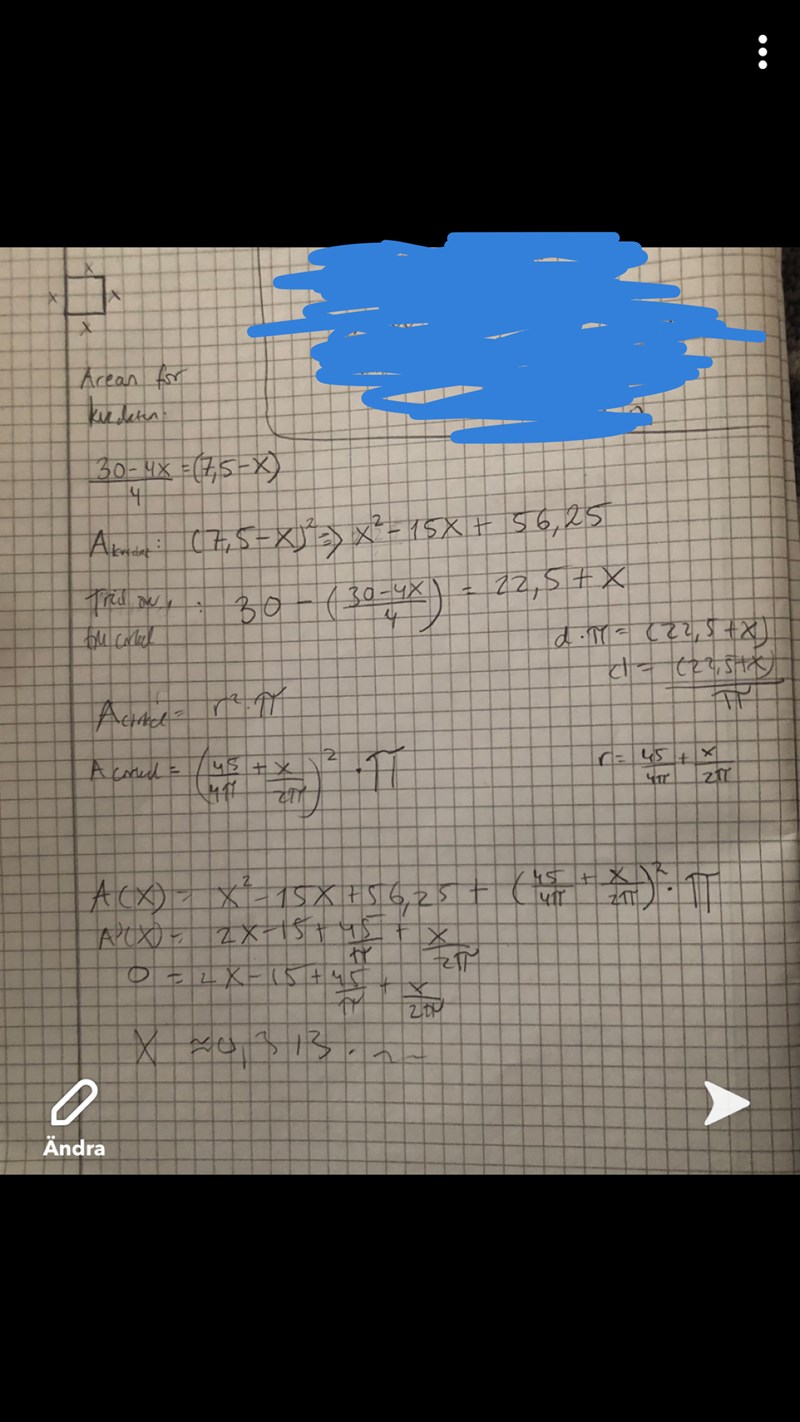 x
x x
x
Arean för
kvadraten:
30-4x/4 = (7,5-x)
A kvadrat: (7,5-x)² => x²-15x+56,25
: 30 - (30-4x/4) = 22,5+x
d·π = (22,5+x)
d = (22,5+x)/π
A cirkel = r²·π
A cirkel = (45/4π + x/2π)² · π
r = 45/4π + x/2π
A(x) = x²-15x+56,25 + (45/4π + x/2π)² · π
A'(x) = 2x-15+45/π + x/2π
0 = 2x-15+45/π + x/2π
x ≈ 0,313...
Ändra